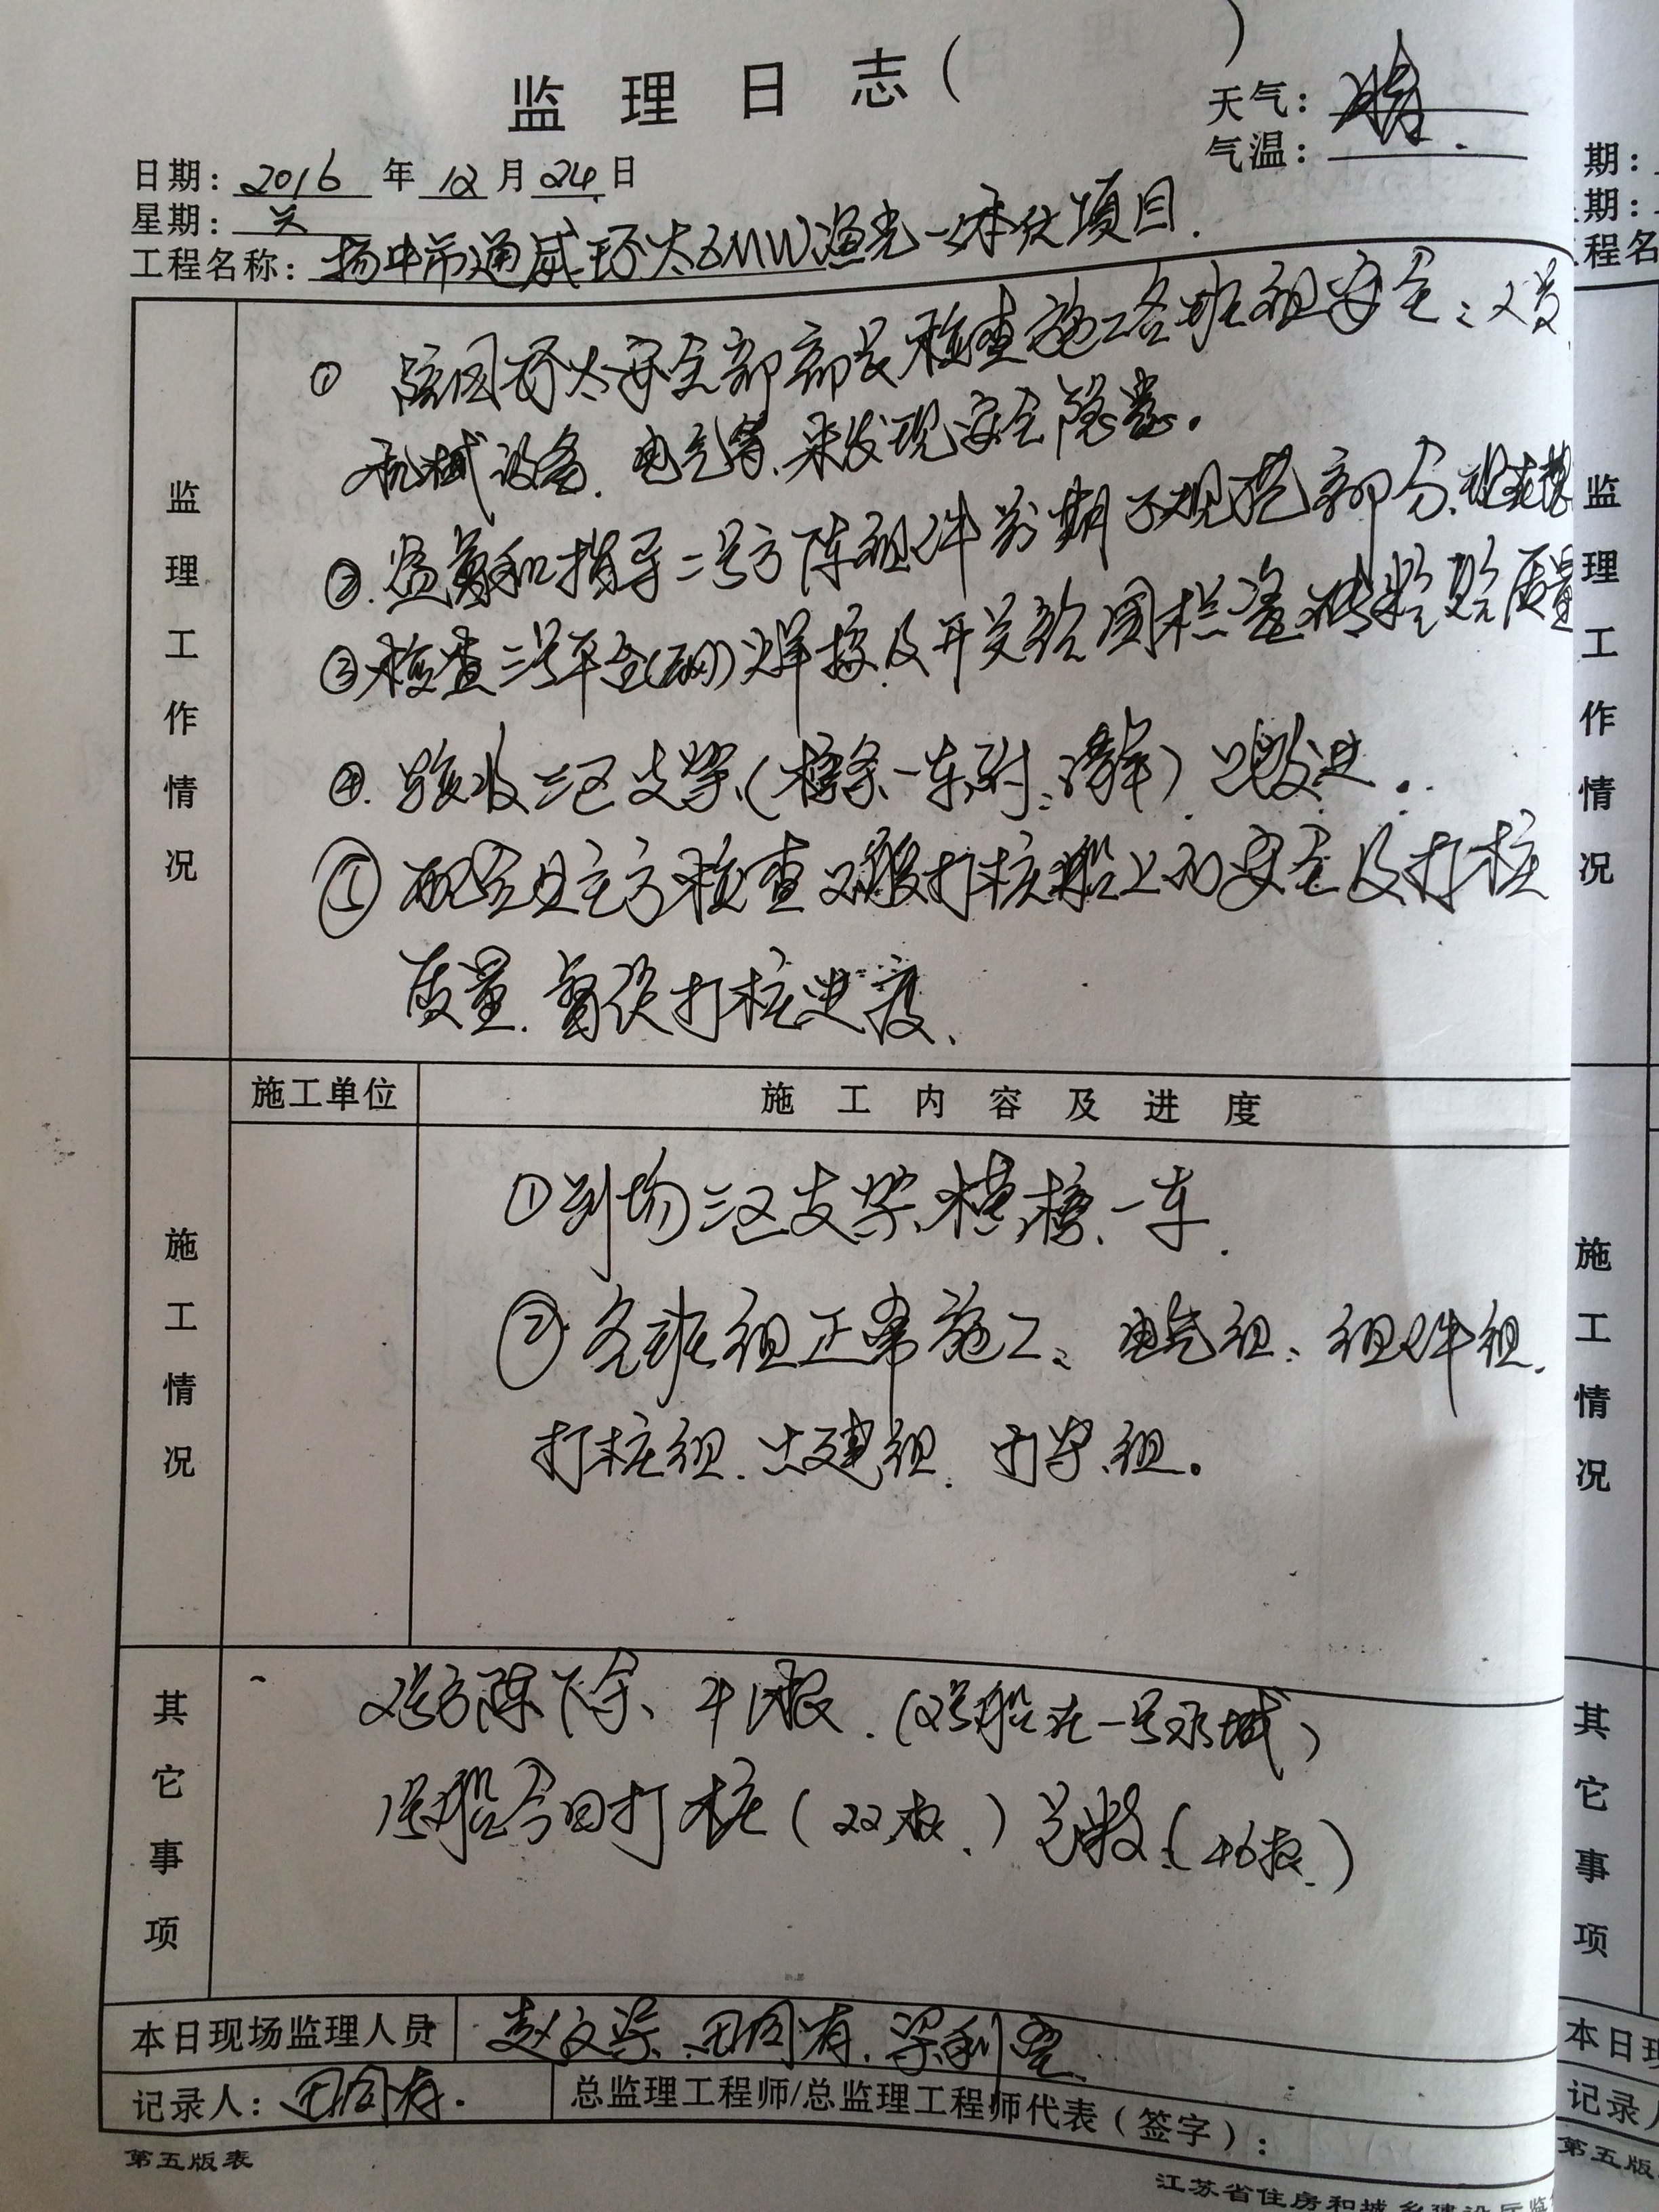 监理日志(　　　)
天气: 晴
气温:
日期: 2016 年 12 月 24 日
星期: 六
工程名称: 扬中市通威环太5MW渔光一体化项目.
监理工作情况
① 陪同环太安全部部长检查施工各班组安全:
机械设备、电气等、未发现安全隐患。
②. 和指导二号方阵组件前期不规范部分、
③ 检查二号平台 焊接及开关站围栏 质量
④. 验收三区支架(檩条一车 )
⑤ 配合业主方检查 打桩船上的安全及打桩
质量、督促打桩进度、
施工单位
施工内容及进度
施工情况
①到场三区支架、横檩、一车.
② 各班组正常施工: 电气组、组件组、
打桩组、土建组、支架组。
其它事项
2号方阵下余、 (2号船在一号水域)
1号船今日打桩(22根、)总数:(46根)
本日现场监理人员 赵文荣、田同有、梁利
记录人: 田同有.
总监理工程师/总监理工程师代表(签字):
第五版表
江苏省住房和城乡建设厅监
期:
期:
程名
监理工作情况
施工情况
其它事项
本日现
记录
第五版